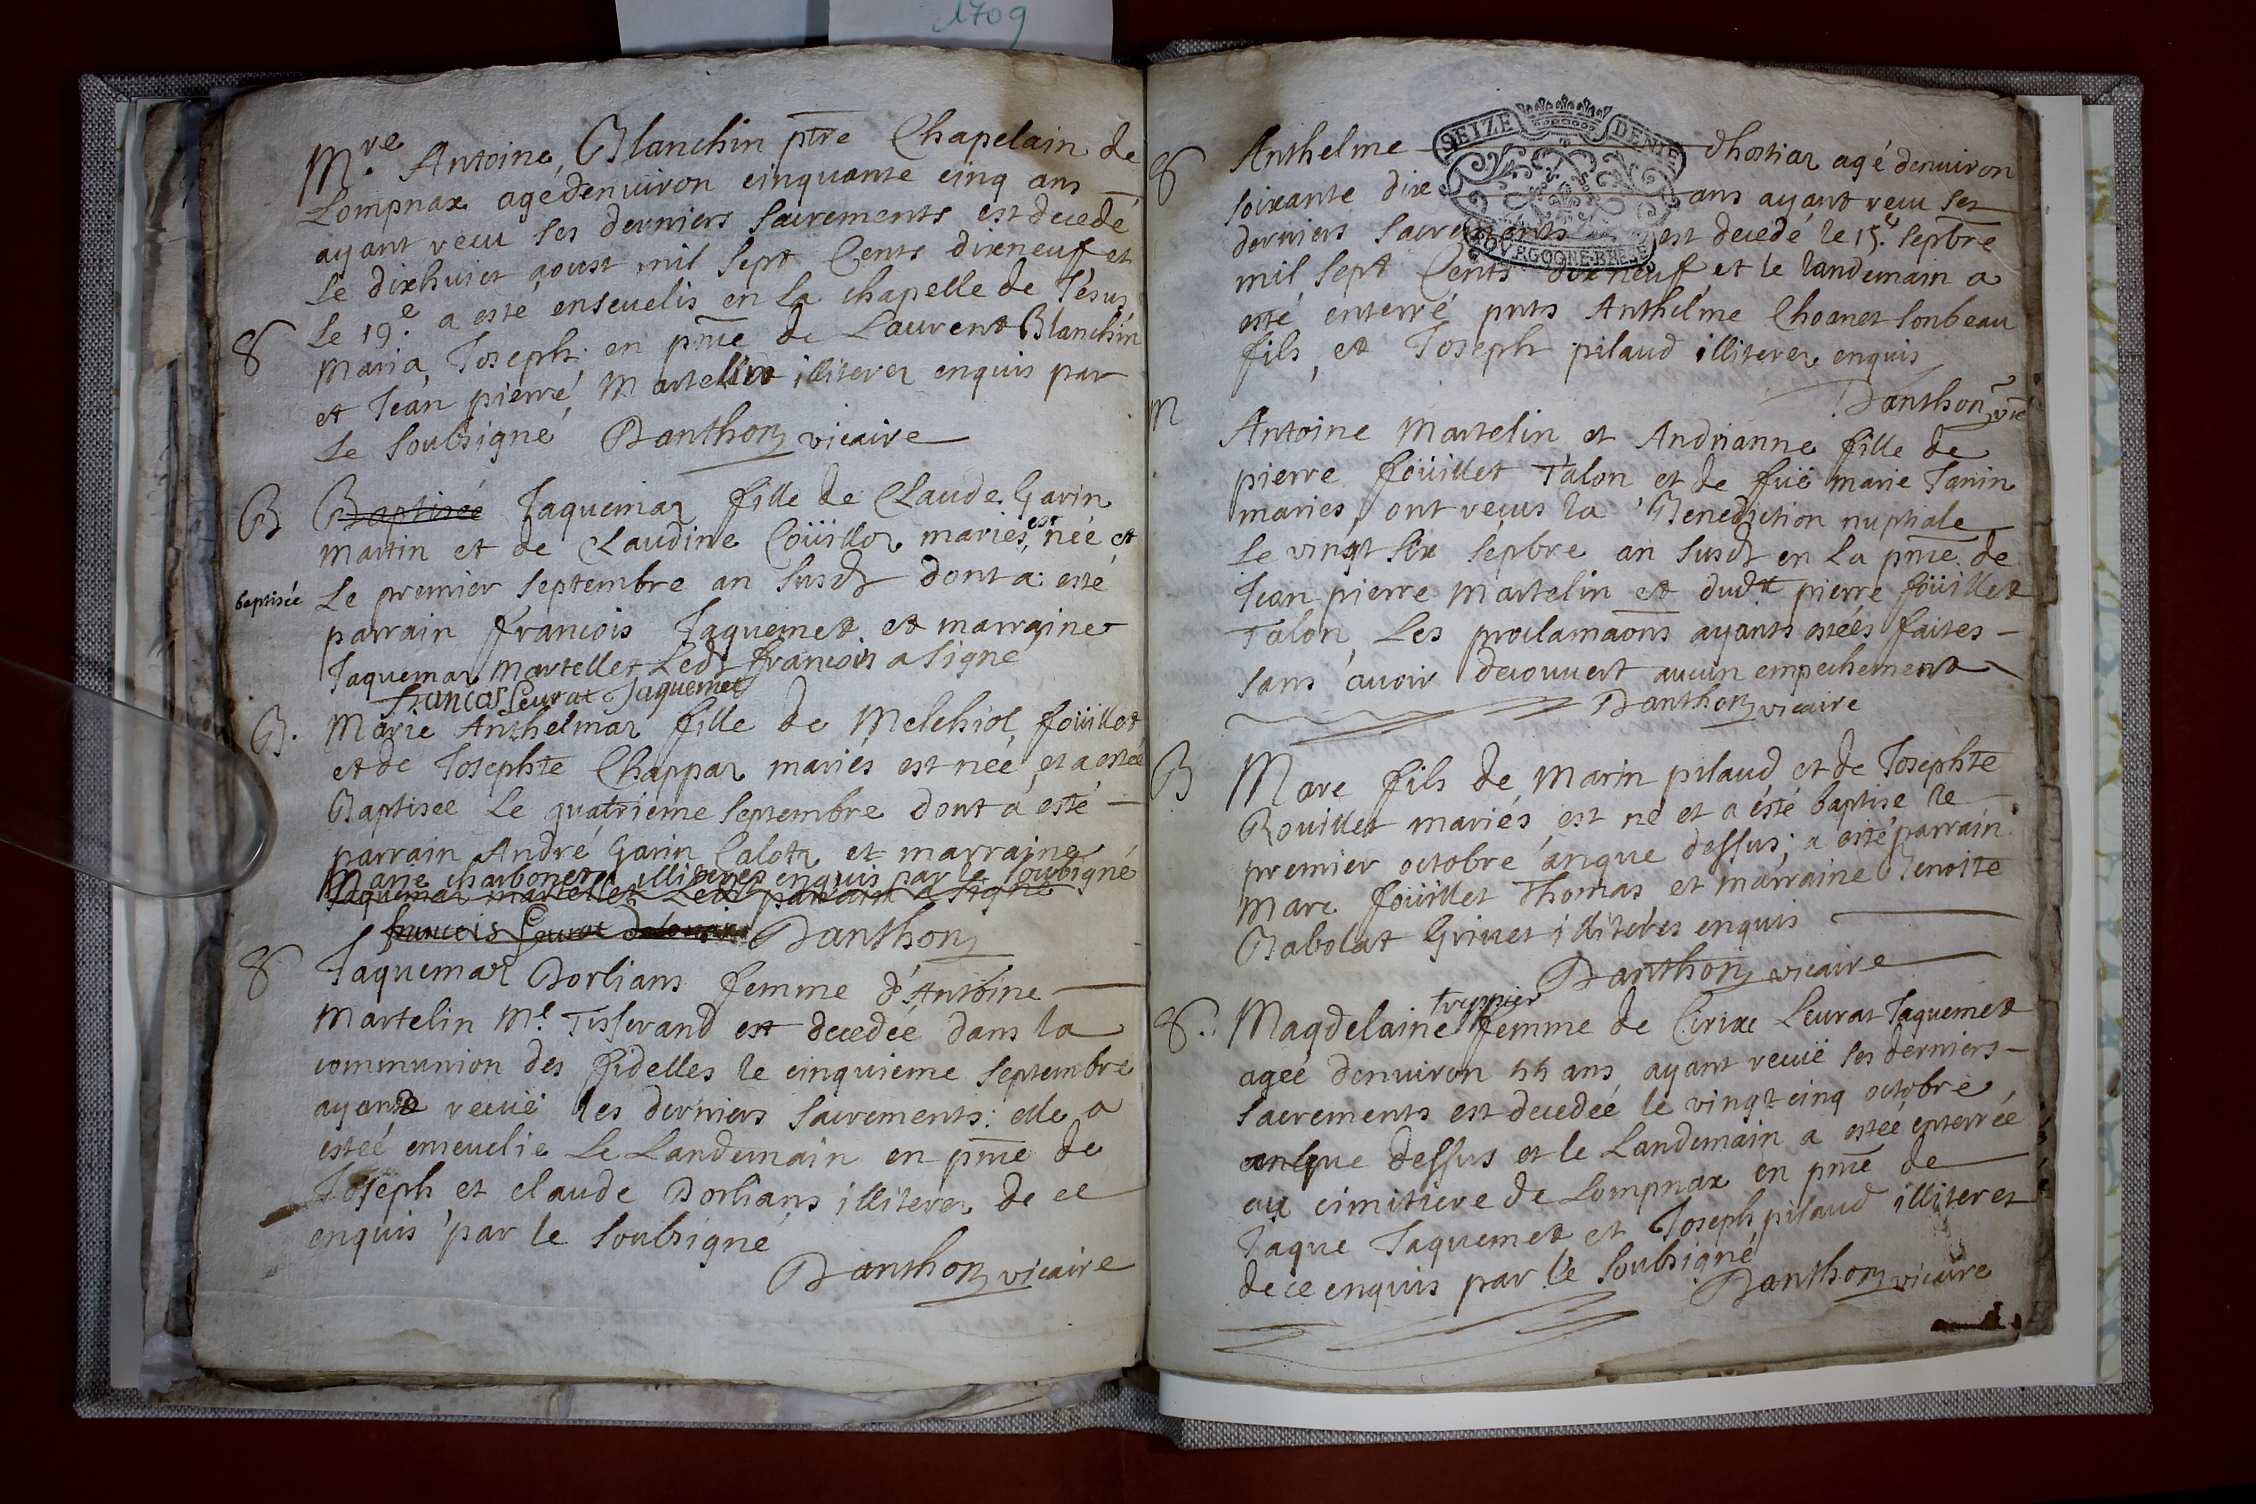 1709
Mre Antoine Blanchin ptre Chapelain de
Lompnax agé denuiron cinquante cinq ans
ayant recu ses derniers sacrements est decedé
Le dixhuict aoust mil sept Cents dixneuf et
Le 19e. a esté enseuelis en La chapelle de Jesus
8 Maria Joseph en pnce de Laurent Blanchin
et Jean pierre Martellin illiterez enquis par
Le soubsigné Danthon vicaire
B Baptisée Jaquemaz fille de Claude Garin
Martin et de Claudine Coüilloz mariés est née et
baptisée Le premier septembre an susdt dont a esté
parrain francois Jaquemet et marraine
Jaquemaz Martellet Ledt francois a signé
francois Leurat Jaquemet
B. Marie Anthelmaz fille de Melchiol foüillet
et de Josephte Chappaz mariés est née et a estée
Baptisee Le quatrieme septembre dont a esté
parrain André Garin Calotz et marraine
Marie charbonet illiteres enquis par le soubsigné
Jaquemaz martellet Ledt parrain a signé
francois Leurat
Danthon
8 Jaquemaz Dorlians femme d'Antoine
Martelin Me. Tisserand est decedée dans la
communion des fidelles le cinquieme septembre
ayant recuë les derniers sacrements: elle a
estée enseuelie Le Landemain en pnce de
Joseph et claude Dorlians illiterez de ce
enquis par le soubsigné
Danthon vicaire
SEIZE DENIE
BOVRGOGNE-BRESSE
8 Anthelme dhostiaz agé denuiron
soixante dix ans ayant recu ses
derniers sacrements est decedé le 15e. sepbre
mil sept Cents dixneuf et le landemain a
esté enterré pnts Anthelme Choanet son beau
fils, et Joseph pilaud illiterez enquis
Danthon vic
M Antoine Martelin et Andrianne fille de
pierre foüillet Talon et de füe marie Janin
maries, ont recus la Benediction nuptiale
Le vingt six sepbre an susdt en La pnce de
Jean pierre Martelin et dudt pierre foüillet
Talon Les proclamaons ayants estéés faites
sans auoir decouuert aucun empechement
Danthon vicaire
B Marc fils de Marin pilaud et de Josephte
Rouillet mariés est né et a ésté baptise le
premier octobre anque dessus; a esté parrain
Marc foüillet Thomas, et marraine Benoite
Babolat Griuet illiteres enquis
Danthon vicaire
treppier
8. Magdelaine femme de Cirixe Leurat Jaquemet
agée denuiron 55 ans ayant recuë ses derniers
sacrements est decedée le vingt cinq octobre
anque dessus et le Landemain a estée enterrée
au cimitiere de Lompnax en pnce de
Jaque Jaquemet et Joseph pilaud illiteret
de ce enquis par le soubsigné
Danthon vicaire